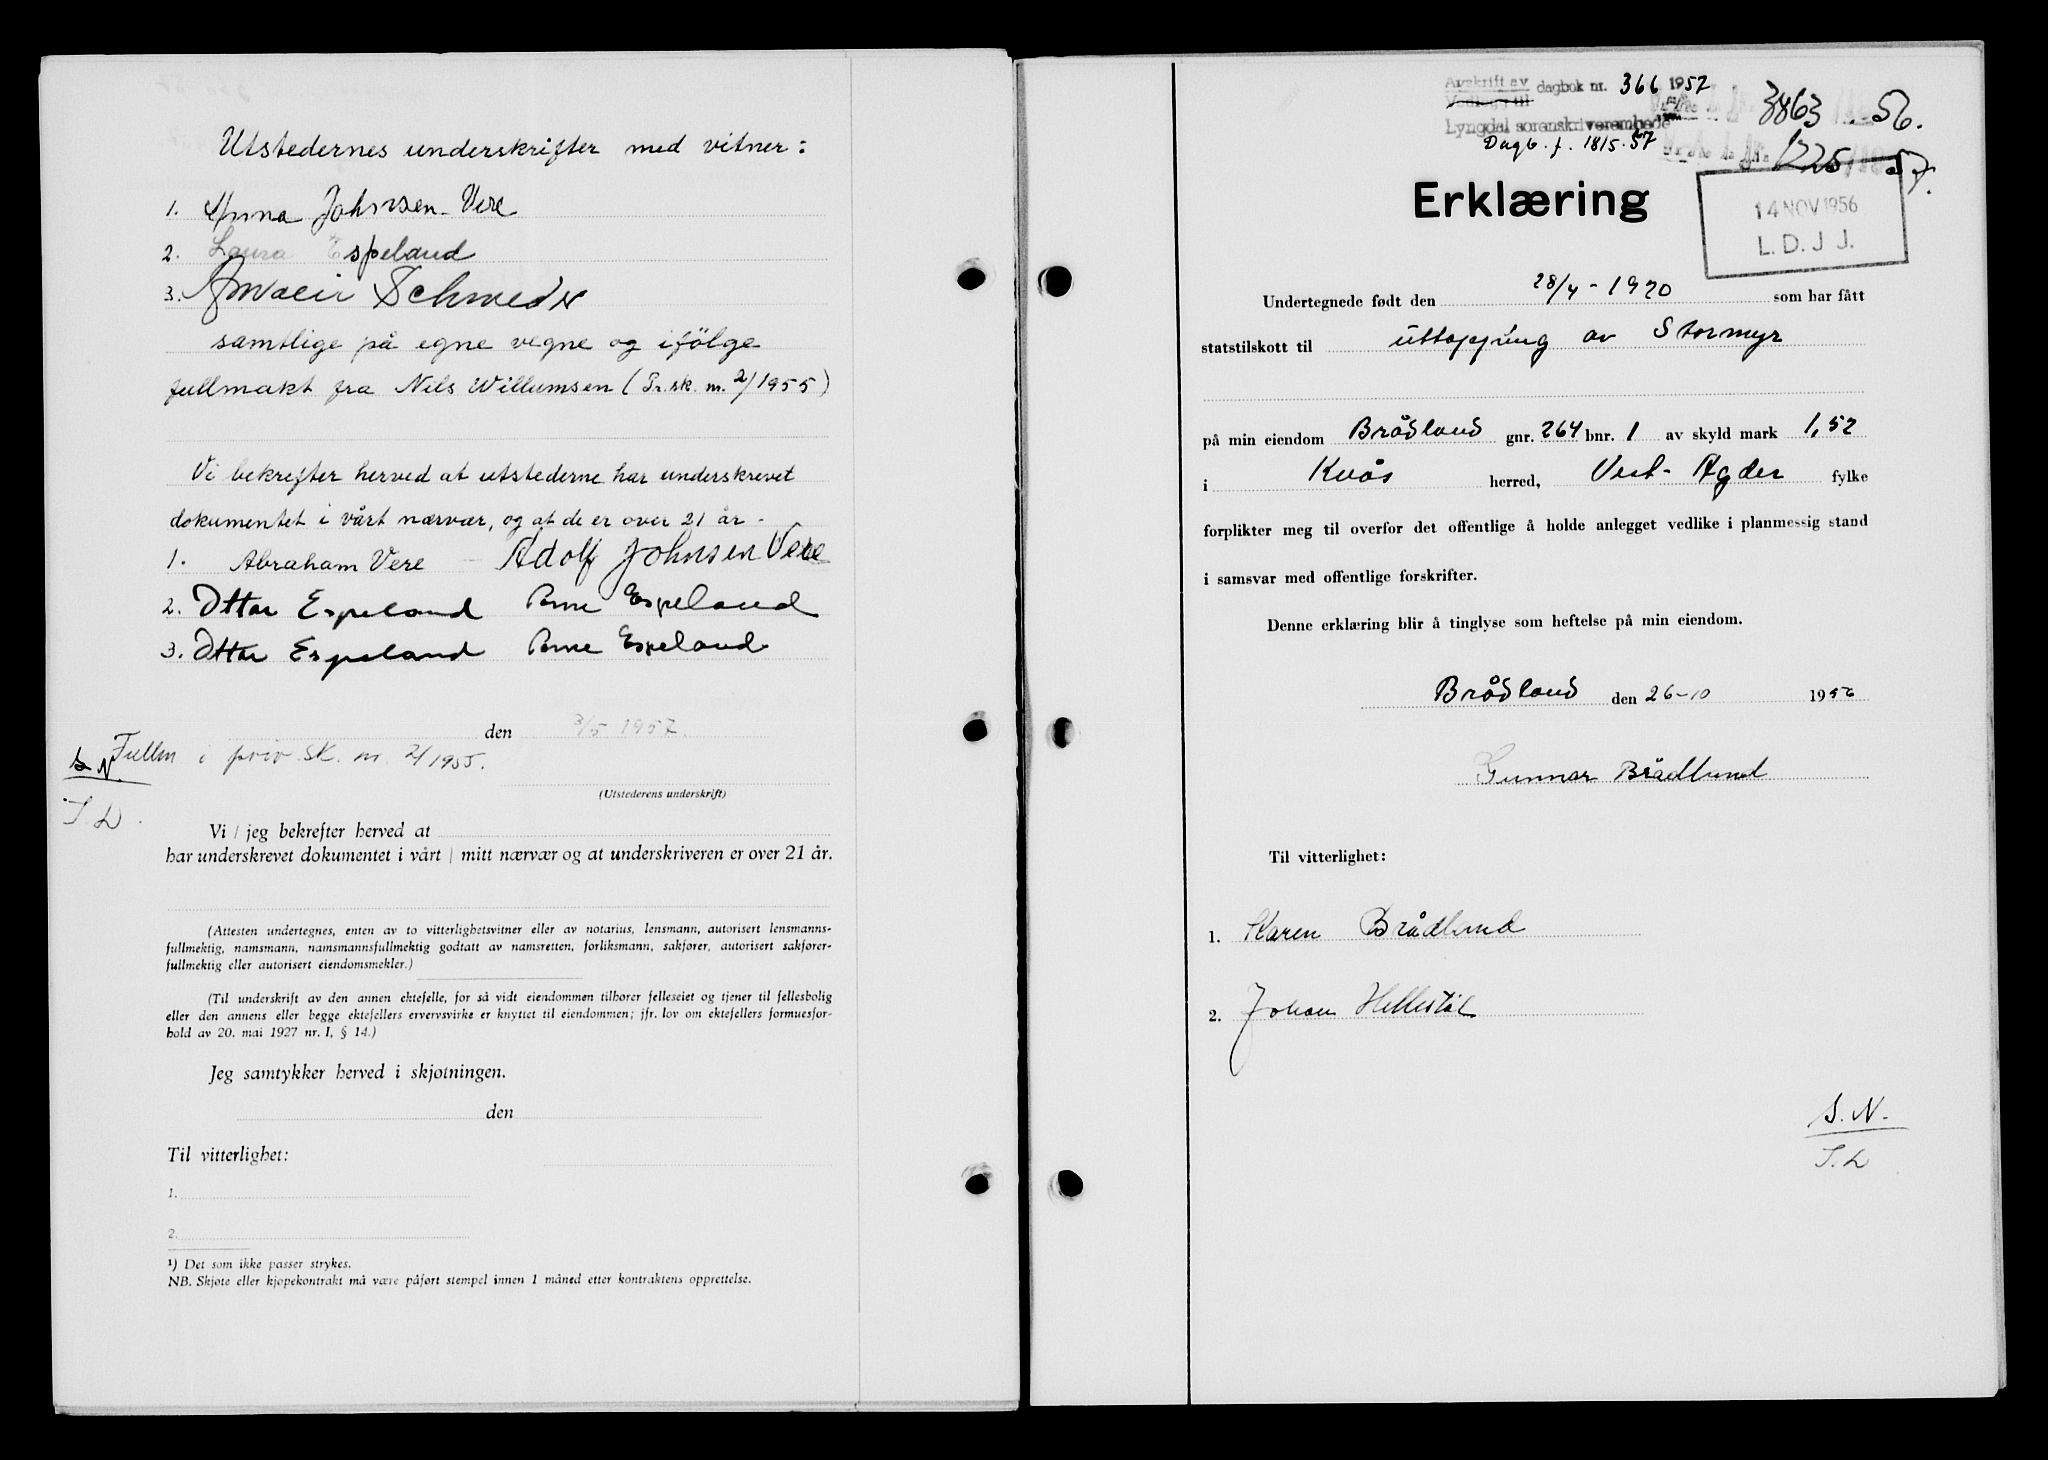 Utstedernes underskrifter med vitner:
1. Anna Johnsen Vere
2. Laura Espeland
3. Schmedr
samtlige på egne vegne og ifölge
fullmakt fra Nils Willumsen (Pr.sk. nr. 2/1955)
Vi bekrefter herved at utstederne har underskrevet
dokumentet i vårt nærvær, og at de er over 21 år.
1. Abraham Vere - Adolf Johnsen Vere
2. Ottar Espeland Arne Espeland
3. Ottar Espeland Arne Espeland
den 3/5 1957.
Fullm i priv. sk. nr. 2/1955.
S.N.
I.L.
(Utstederens underskrift)
Vi / jeg bekrefter herved at
har underskrevet dokumentet i vårt / mitt nærvær og at underskriveren er over 21 år.
(Attesten undertegnes, enten av to vitterlighetsvitner eller av notarius, lensmann, autorisert lensmanns-
fullmektig, namsmann, namsmannsfullmektig godtatt av namsretten, forliksmann, sakfører, autorisert sakfører-
fullmektig eller autorisert eiendomsmekler.)
(Til underskrift av den annen ektefelle, for så vidt eiendommen tilhører felleseiet og tjener til fellesbolig
eller den annens eller begge ektefellers ervervsvirke er knyttet til eiendommen; jfr. lov om ektefellers formuesfor-
hold av 20. mai 1927 nr. I, § 14.)
Jeg samtykker herved i skjøtningen.
den
Til vitterlighet:
1.
2.
¹) Det som ikke passer strykes.
NB. Skjøte eller kjøpekontrakt må være påført stempel innen 1 måned etter kontraktens opprettelse.
Avskrift av
Vedlegg til dagbok nr. 366 1957
Lyngdal sorenskriverembede
3863 . 56.
Dagb. f. 1815-57
1225 57.
Erklæring
14 NOV 1956
L. D. J J.
Undertegnede født den 28/4 - 1920 som har fått
statstilskott til uttapping av Stormyr
på min eiendom Brådland gnr. 264 bnr. 1 av skyld mark 1,52
i Kvås herred, Vest-Agder fylke
forplikter meg til overfor det offentlige å holde anlegget vedlike i planmessig stand
i samsvar med offentlige forskrifter.
Denne erklæring blir å tinglyse som heftelse på min eiendom.
Brådland den 26-10 1956
Gunnar Brådland
Til vitterlighet:
1. Karen Brådland
2. Johan Hellestøl
S.N.
I.L